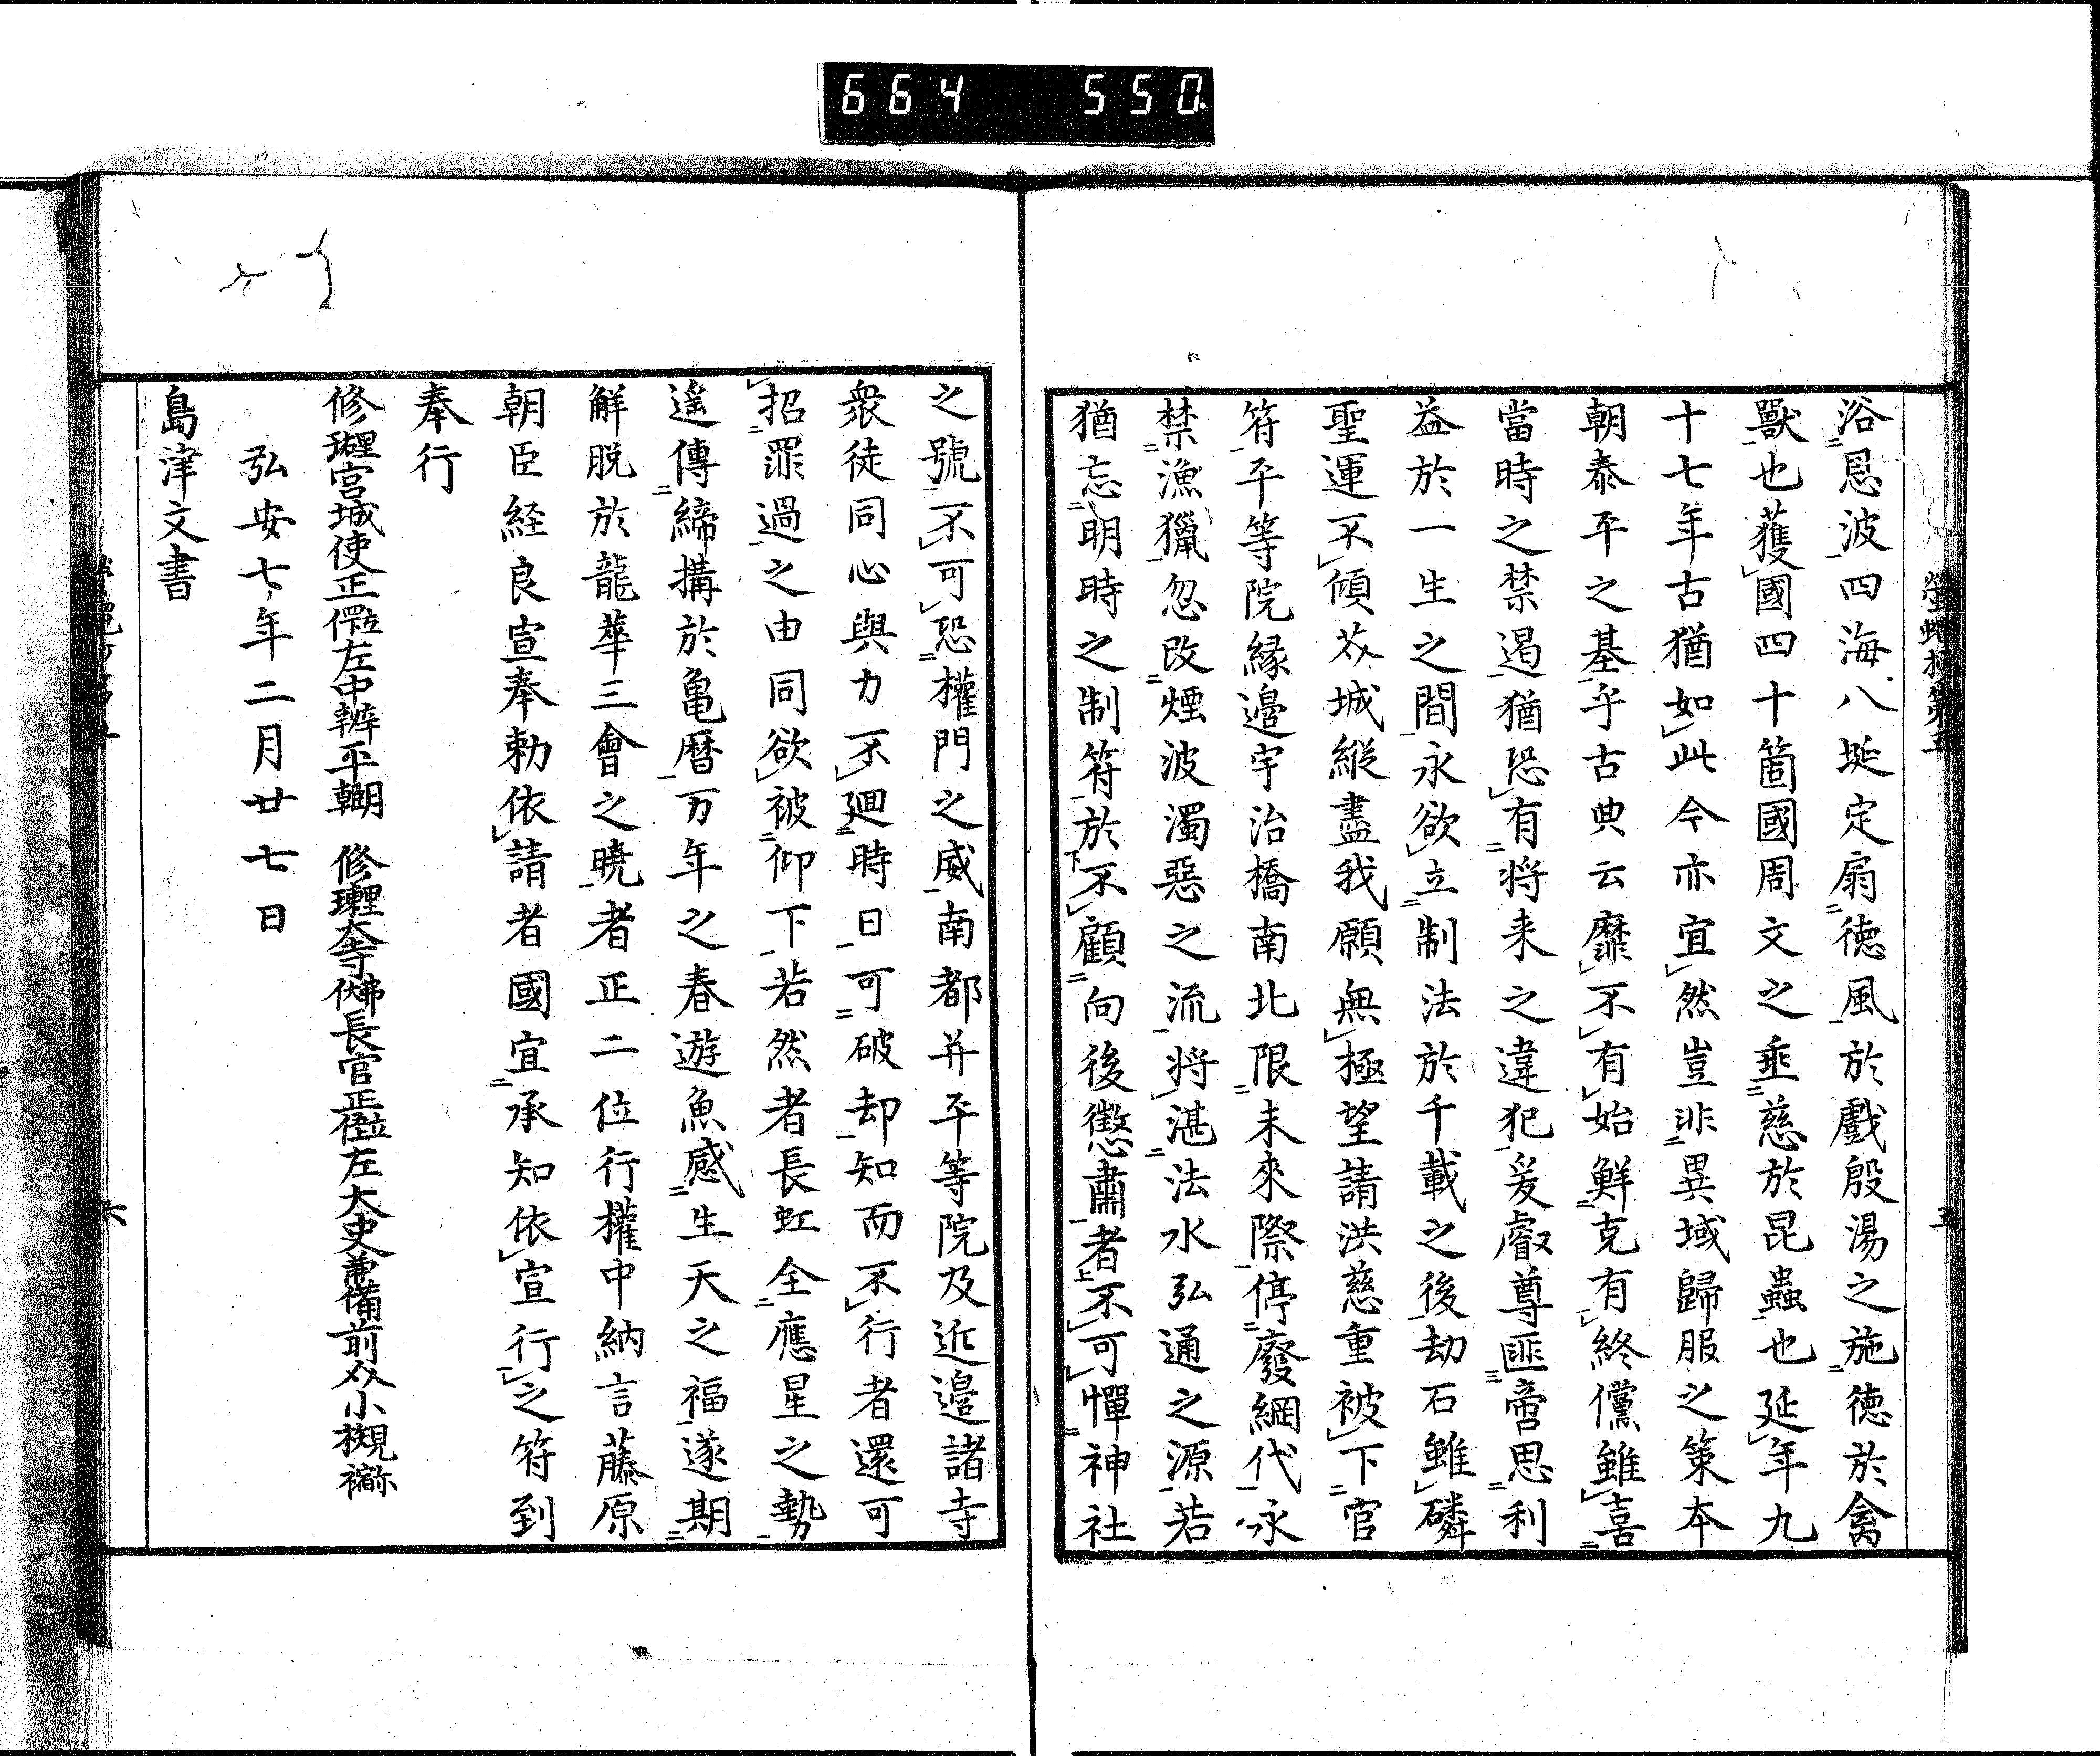 664 550.
浴恩波四海八埏定扇徳風於戲殷湯之施徳於禽
獸也獲國四十箇國周文之垂慈於昆蟲也延年九
十七年古猶如此今亦宜然豈非異域歸服之策本
朝泰平之基乎古典云靡不有始鮮克有終儻雖喜
當時之禁遏猶恐有将来之違犯爰叡尊匪啻思利
益於一生之間永欲立制法於千載之後劫石雖磷
聖運不傾芥城縱盡我願無極望請洪慈重被下官
符平等院縁邊宇治橋南北限未來際停廢網代永
禁漁獵忽改煙波濁惡之流将湛法水弘通之源若
猶忘明時之制符於不顧向後懲肅者不可憚神社
五
之號不可恐權門之威南都并平等院及近邊諸寺
衆徒同心與力不廻時日可破却知而不行者還可
招罪過之由同欲被仰下若然者長虹全應星之勢
遙傳締搆於亀曆万年之春遊魚感生天之福遂期
解脱於龍華三會之曉者正二位行權中納言藤原
朝臣経良宣奉勅依請者國宜承知依宣行之符到
奉行
修理宮城使正四位左中辨平朝臣 修理東大寺大佛長官正五位左大史兼備前介小槻宿祢
弘安七年二月廿七日
島津文書
六